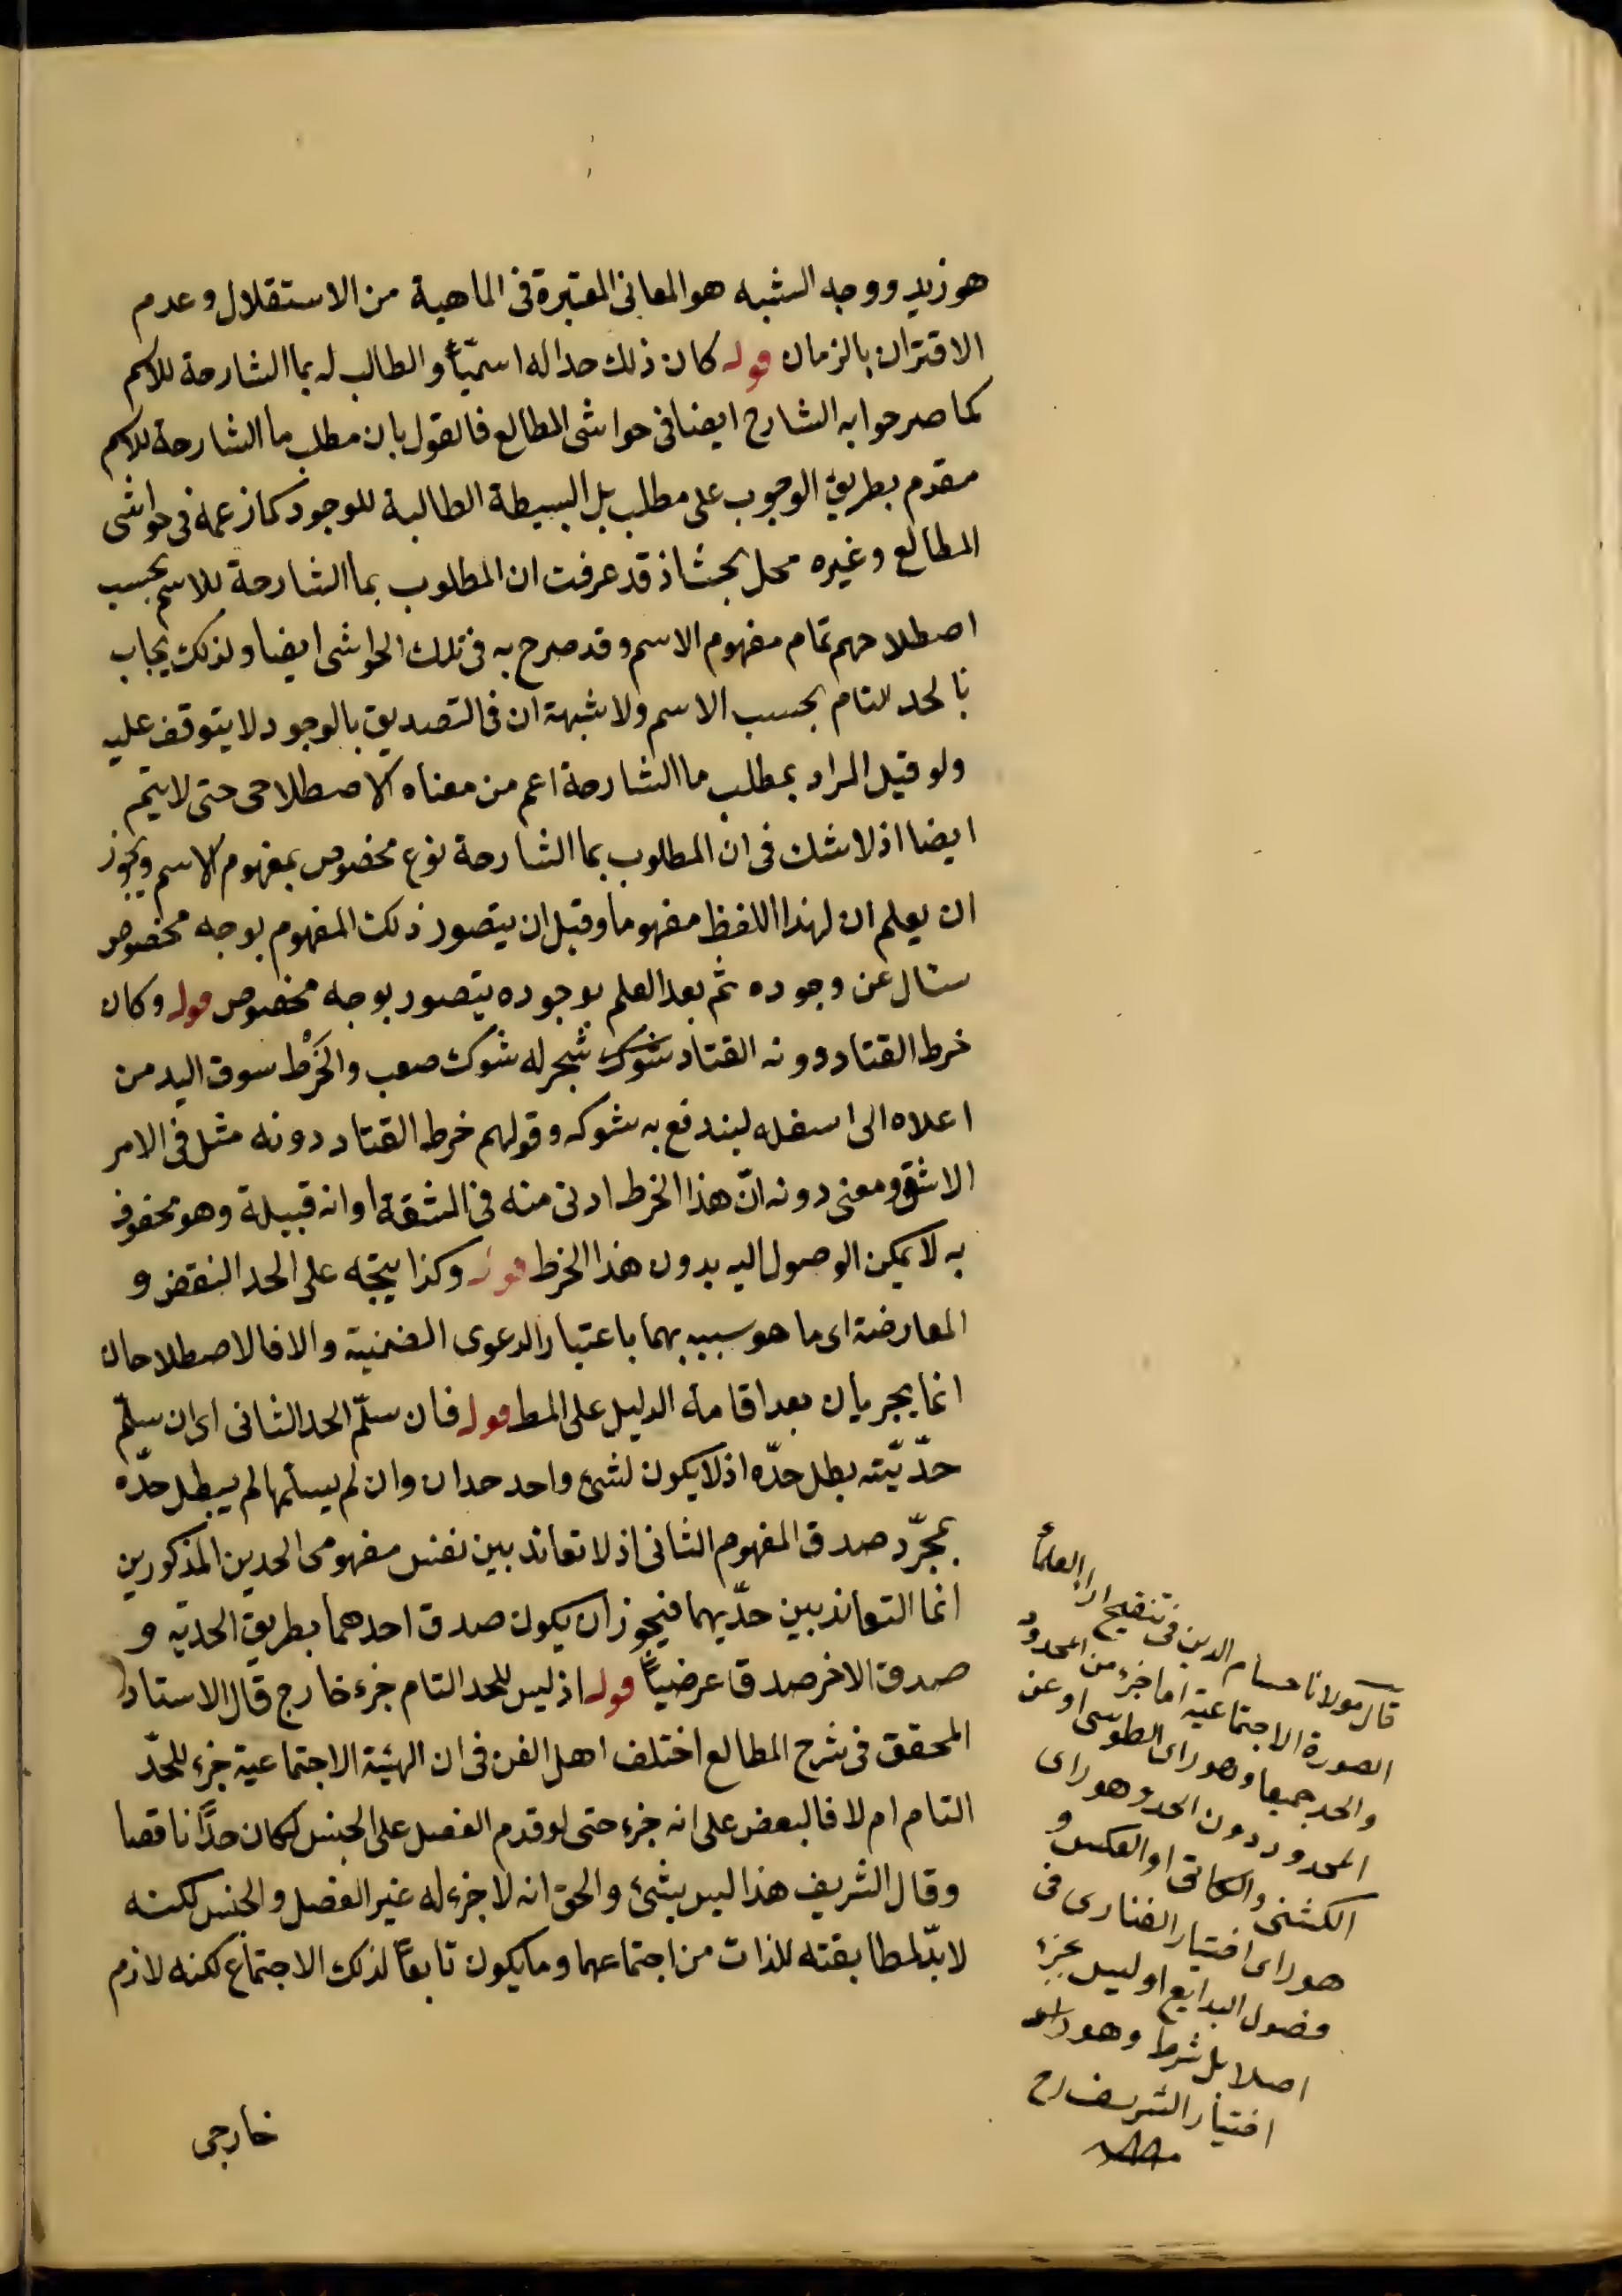 هو زيد ووجه الشبه هو المعانى المعتبرة فى الماهية من الاستقلال وعدم
الاقتران بالزمان قوله كان ذلك حدا له اسميّاً والطالب له بما الشارحة للاسم
كما صرحوا به الشارح ايضا فى حواشى المطالع فالقول بان مطلب ما الشارحة للاسم
مقدم بطريق الوجوب على مطلب بل البسيطة الطالبة للوجود كما زعمه فى حواشى
المطالع وغيره محل بحث اذ قد عرفت ان المطلوب بما الشارحة للاسم بحسب
اصطلاحهم تمام مفهوم الاسم وقد صرح به فى تلك الحواشى ايضا ولذلك يجاب
بالحد التام بحسب الاسم ولا شبهة ان فى التصديق بالوجود لا يتوقف عليه
ولو قيل المراد بمطلب ما الشارحة اعم من معناه الاصطلاحى حتى لا يتم
ايضا اذ لا شك فى ان المطلوب بما الشارحة نوع مخصوص بمفهوم الاسم ويجوز
ان يعلم ان لهذا اللفظ مفهوما وقبل ان يتصور ذلك المفهوم بوجه مخصوص
سئال عن وجوده ثم بعد العلم بوجوده يتصور بوجه مخصوص قوله وكان
خرط القتاد دونه القتاد شوك شجر له شوك صعب والخَرْط سوق اليد من
اعلاه الى اسفله ليندفع به شوكه وقولهم خرط القتاد دونه مثل فى الامر
الاشق ومعنى دونه انّ هذا الخرط ادنى منه فى المشقة او انه قبيله وهو محفوف
به لا يمكن الوصول اليه بدون هذا الخرط قوله وكذا يتجه على الحد النقض و
المعارضة اى ما هو سببه بهما باعتبار الدعوى الضمنية والا فالاصطلاحان
انما يجريان بعد اقامة الدليل على المط قوله فان سلّم الحد الثانى اى ان سلّم
حدّيّته بطل حدّه اذ لا يكون لشئ واحد حدان وان لم يسلمها لم يبطل حدّه
بمجرّد صدق المفهوم الثانى اذ لا تعاند بين نفس مفهومى الحدين المذكورين
انما التعاند بين حدّيهما فيجوز ان يكون صدق احدهما بطريق الحديّه و
صدق الاخر صدقا عرضيّاً قوله اذ ليس للحد التام جزء خارج قال الاستاد
المحقق فى شرح المطالع اختلف اهل الفن فى ان الهيئة الاجتماعية جزء للحدّ
التام ام لا فالبعض على انه جزء حتى لو قدم الفصل على الجنس لكان حدًّا ناقصا
وقال الشريف هذا ليس بشئ والحق انه لا جزء له غير الفصل والجنس لكنه
لا بدّ لمطابقته للذات من اجتماعهما وما يكون تابعاً لذلك الاجتماع لكنه لازم
خارجى
قال مولانا حسام الدين فى تنقيح اراء العلماء
الصورة الاجتماعية اما جزء من المحدود
والحد جميعا وهو راى الطوسى او عن
المحدود دون الحد وهو راى
الكشى والكاتى او العكس و
هو راى اختيار الفنارى فى
فصول البدايع او ليس بجزء
اصلا بل شرط وهو راى
اختيار الشريف رح